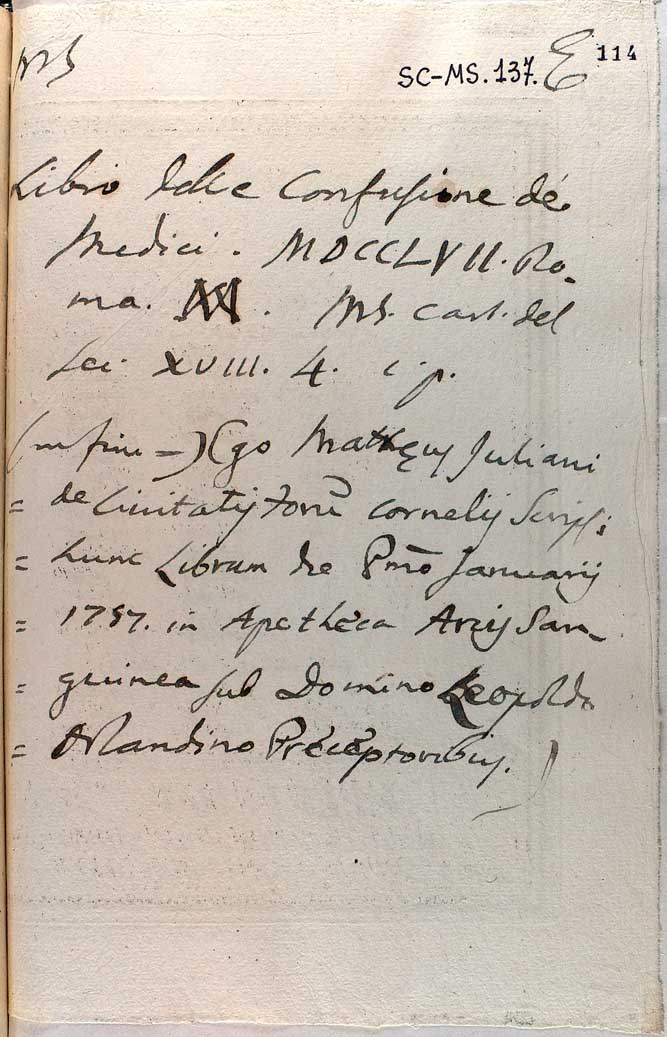 MS
SC-MS. 137. E 114
Libro delle Confusione de
Medici. MDCCLVII. Ro-
ma. MS. cart. del
sec. XVIII. 4. c. p.
(in fine =) Ego Mattheus Juliani
= de Civitatis Cornelij Scripsi
= hunc Librum die Pmo Januarij
= 1757. in Apotheca Arcis San-
= guinea sub Domino Leopoldo
= Orlandino Preceptoribus.)